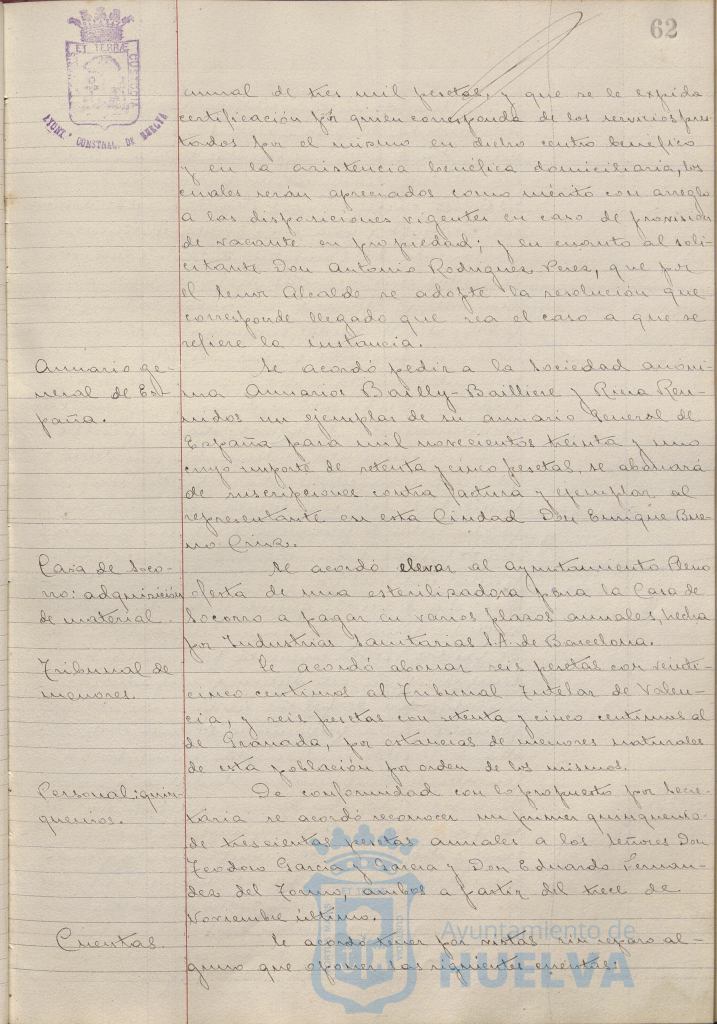 62
ET TERRÆ
AYUNT. CONSTNAL. DE HUELVA
anual de tres mil pesetas, y que se le expida
certificación por quien corresponda de los servicios pres
tados por el mismo en dicho centro benéfico
y en la asistencia benéfica domiciliaria, los
cuales serán apreciados como mérito con arreglo
a las disposiciones vigentes en caso de provisión
de vacante en propiedad; y en cuanto al soli-
citante Don Antonio Rodriguez Perez, que por
el Señor Alcalde se adopte la resolución que
corresponde llegado que sea el caso a que se
refiere la instancia.
Anuario ge-
neral de Es-
paña.
Se acordó pedir a la Sociedad anóni-
ma Anuarios Bailly-Bailliere y Riera Reu-
nidos un ejemplar de su anuario General de
España para mil novecientos treinta y uno
cuyo importe de setenta y cinco pesetas, se abonará
de suscripciones contra factura y ejemplar al
representante en esta Ciudad Don Enrique Bue-
no Cruz.
Casa de Soco-
rro: adquisición
de material.
Se acordó elevar al Ayuntamiento Pleno
oferta de una esterilizadora para la Casa de
Socorro a pagar en varios plazos anuales, hecha
por Industrias Sanitarias S.A. de Barcelona.
Tribunal de
menores.
Se acordó abonar seis pesetas con veinte-
cinco centimos al Tribunal Tutelar de Valen-
cia, y seis pesetas con setenta y cinco centimos al
de Granada, por estancias de menores naturales
de esta población por orden de los mismos.
Personal: quin-
quenios.
De conformidad con lo propuesto por Secre-
taria se acordó reconocer un primer quinquenio
de trescientas pesetas anuales a los Señores Don
Teodoro Garcia y Garcia y Don Eduardo Fernan-
dez del Torno, ambos a partir del trece de
Noviembre último.
Cuentas.
Se acordó tener por vistas sin reparo al-
guno que oponer las siguientes cuentas:
Ayuntamiento de
HUELVA